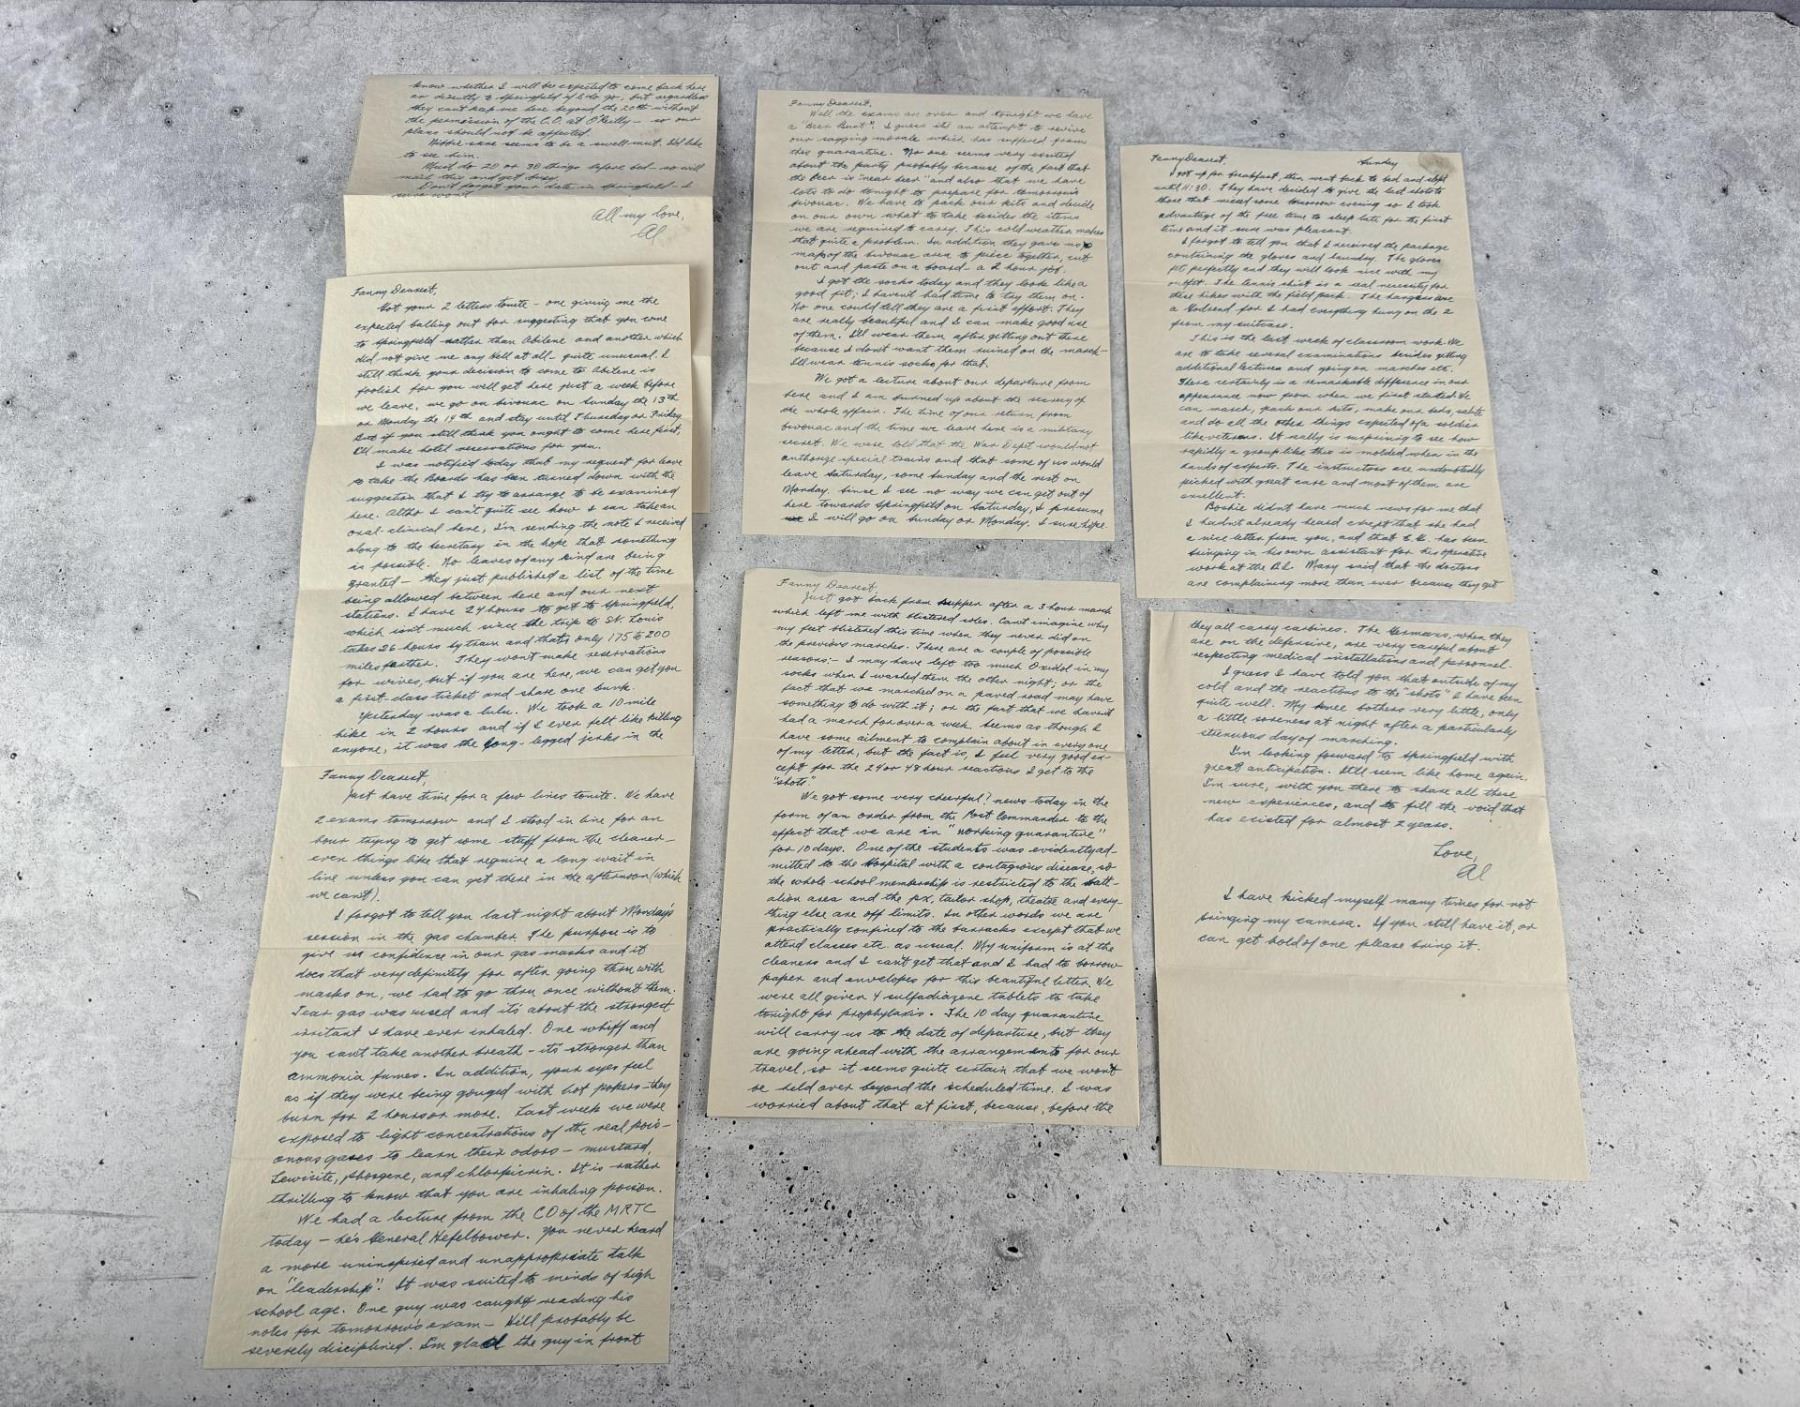 know whether I will be expected to come back here
or directly to Springfield if I do go, but regardless
they can't keep me here beyond the 20th without
the permission of the C.O. at O'Reilly - so our
plans should not be affected.
seems to be a swell mut. I'd like
to see him.
Must do 20 or 30 things before bed - so will
mail this and get busy.
Don't forget your date in Springfield - I
sure won't.
All my love,
Al
Fanny Dearest,
Got your 2 letters tonite - one giving me the
expected balling out for suggesting that you come
to Springfield rather than Abilene and another which
did not give me any hell at all - quite unusual. I
still think your decision to come to Abilene is
foolish for you will get here just a week before
we leave, we go on bivouac on Sunday the 13th
or Monday the 14th and stay until Thursday or Friday.
But if you still think you ought to come here first,
I'll make hotel reservations for you.
I was notified today that my request for leave
to take the Boards has been turned down with the
suggestion that I try to arrange to be examined
here. Altho I can't quite see how I can take an
oral clinical here, I'm sending the note I received
along to the secretary in the hope that something
is possible. No leaves of any kind are being
granted - they just published a list of the time
being allowed between here and our next
stations. I have 24 hours to get to Springfield,
which isn't much since the trip to St. Louis
takes 26 hours by train and that's only 175 to 200
miles farther. They won't make reservations
for wives, but if you are here, we can get you
a first-class ticket and share one bunk.
Yesterday was a lulu. We took a 10 mile
hike in 2 hours and if I ever felt like killing
anyone, it was the long-legged jerks in the
Fanny Dearest,
Just have time for a few lines tonite. We have
2 exams tomorrow and I stood in line for an
hour trying to get some stuff from the cleaner -
even things like that require a long wait in
line unless you can get there in the afternoon (which
we can't).
I forgot to tell you last night about Monday's
session in the gas chamber. The purpose is to
give us confidence in our gas masks and it
does that very definitely for after going thru with
masks on, we had to go thru once without them.
Tear gas was used and it's about the strongest
irritant I have ever inhaled. One whiff and
you can't take another breath - it's stronger than
ammonia fumes. In addition, your eyes feel
as if they were being gouged with hot pokers - they
burn for 2 hours or more. Last week we were
exposed to light concentrations of the real pois-
onous gases to learn their odors - mustard,
Lewisite, phosgene, and chlorpicrin. It is rather
thrilling to know that you are inhaling poison.
We had a lecture from the CO of the MRTC
today - he's General Hefelbower. You never heard
a more uninspired and unappropriate talk
on "leadership". It was suited to minds of high
school age. One guy was caught reading his
notes for tomorrow's exam - He'll probably be
severely disciplined. I'm glad the guy in front
Fanny Dearest,
Well the exams are over and tonight we have
a "Beer Bust". I guess it's an attempt to revive
our sagging morale which has suffered from
this quarantine. No one seems very excited
about the party probably because of the fact that
the Beer is "near beer" and also that we have
lots to do tonight to prepare for tomorrow's
bivouac. We have to pack our kits and decide
on our own what to take besides the items
we are required to carry. This cold weather makes
that quite a problem. In addition they gave us
map of the bivouac area to piece together, cut
out and paste on a board - a 2 hour job.
I got the socks today and they look like a
good fit; I haven't had time to try them on.
No one could tell they are a first effort. They
are really beautiful and I can make good use
of them. I'll wear them after getting out there
because I don't want them ruined on the march -
I'll wear tennis socks for that.
We got a lecture about our departure from
here and I am burned up about the secrecy of
the whole affair. The time of our return from
bivouac and the time we leave here is a military
secret. We were told that the War Dept would not
authorize special trains and that some of us would
leave Saturday, some Sunday and the rest on
Monday. Since I see no way we can get out of
here towards Springfield on Saturday, I presume
I will go on Sunday or Monday. I sure hope
Fanny Dearest,
Just got back from supper after a 3 hour march
which left me with blistered soles. Can't imagine why
my feet blistered this time when they never did on
the previous marches. There are a couple of possible
reasons:- I may have left too much Oxidol in my
socks when I washed them the other night; or the
fact that we marched on a paved road may have
something to do with it; or the fact that we haven't
had a march for over a week. Seems as though I
have some ailment to complain about in every one
of my letter, but the fact is, I feel very good ex-
cept for the 24 or 48 hour reactions I get to the
"shots".
We got some very cheerful? news today in the
form of an order from the Post Commander to the
effect that we are in "working quarantine"
for 10 days. One of the students was evidently ad-
mitted to the Hospital with a contagious disease, so
the whole school membership is restricted to the batt-
alion area and the px, tailor shop, theatre and every-
thing else are off limits. In other words we are
practically confined to the barracks except that we
attend classes etc. as usual. My uniform is at the
cleaners and I can't get that and I had to borrow
paper and envelopes for this beautiful letter. We
were all given 4 sulfadiazene tablets to take
tonight for prophylaxis. The 10 day quarantine
will carry us to the date of departure, but they
are going ahead with the arrangements for our
travel, so it seems quite certain that we won't
be held over beyond the scheduled time. I was
worried about that at first, because, before the
Fanny Dearest, Sunday
I got up for breakfast, then went back to bed and slept
until 11:30. They have decided to give the last shots to
those that missed some tomorrow evening so I took
advantage of the free time to sleep late for the first
time and it sure was pleasant.
I forgot to tell you that I received the package
containing the gloves and laundry. The gloves
fit perfectly and they will look nice with my
outfit. The tennis shirt is a real necessity for
these hikes with the field pack. The hangers are
a Godsend for I had everything hung on the 2
from my suitcase.
This is the last week of classroom work. We
are to take several examinations besides getting
additional lectures and going on marches etc.
There certainly is a remarkable difference in our
appearance now from when we first started. We
can march, pack our kits, make our beds, salute
and do all the other things expected of a soldier
like veterans. It really is surprising to see how
rapidly a group like this is molded when in the
hands of experts. The instructors are undoubtedly
picked with great care and most of them are
excellent.
didn't have much news for me that
I hadn't already heard except that she had
a nice letter from you, and that has been
bringing in his own assistant for his operative
work at the Mary said that the doctors
are complaining more than ever because they get
they all carry carbines. The Germans, when they
are on the defensive, are very careful about
respecting medical installations and personnel.
I guess I have told you that outside of my
cold and the reactions to the "shots" I have been
quite well. My knee bothers very little, only
a little soreness at night after a particularly
strenuous day of marching.
I'm looking forward to Springfield with
great anticipation. It'll seem like home again,
I'm sure, with you there to share all these
new experiences, and to fill the void that
has existed for almost 2 years.
Love,
Al
I have kicked myself many times for not
bringing my camera. If you still have it, or
can get hold of one please bring it.